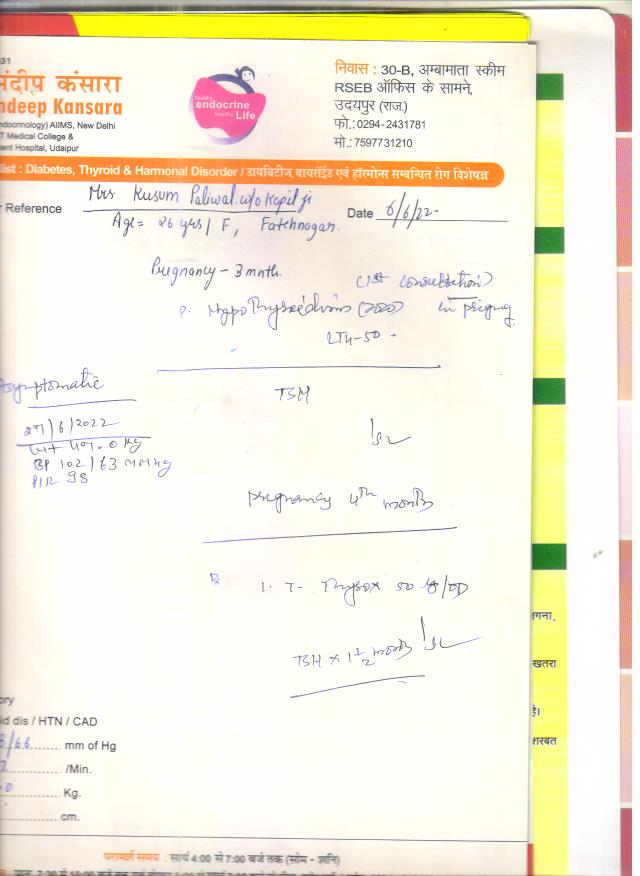 31
संदीप कंसारा
ndeep Kansara
ndocrinology) AIIMS, New Delhi
T Medical College &
ent Hospital, Udaipur
healthy
endocrine
healthy Life
निवास : 30-B, अम्बामाता स्कीम
RSEB ऑफिस के सामने,
उदयपुर (राज.)
फो.:0294-2431781
मो.:7597731210
list : Diabetes, Thyroid & Harmonal Disorder / डायबिटीज, थायरॉईड एवं हॉरमोन्स सम्बन्धित रोग विशेषज्ञ
r Reference Mrs Kusum Paliwal w/o Kapil ji
Date 6/6/22
Age = 26 yrs / F, Fatehnagar.
Pregnancy - 3 mnth.
(1st consultation)
P. Hypothyroidism (2020) in
LT4-50
Asymptomatic
TSH
29/6/2022
BP 102/63 mmHg
P/R 98
Pregnancy 4th month
Rx 1. T- Thyrox 50 /OD
TSH x 1 1/2 month
ory
id dis / HTN / CAD
/66 mm of Hg
/Min.
Kg.
cm.
गना,
खतरा
है।
शरबत
परामर्श समय : सायं 4:00 से 7:00 बजे तक (सोम - शनि)